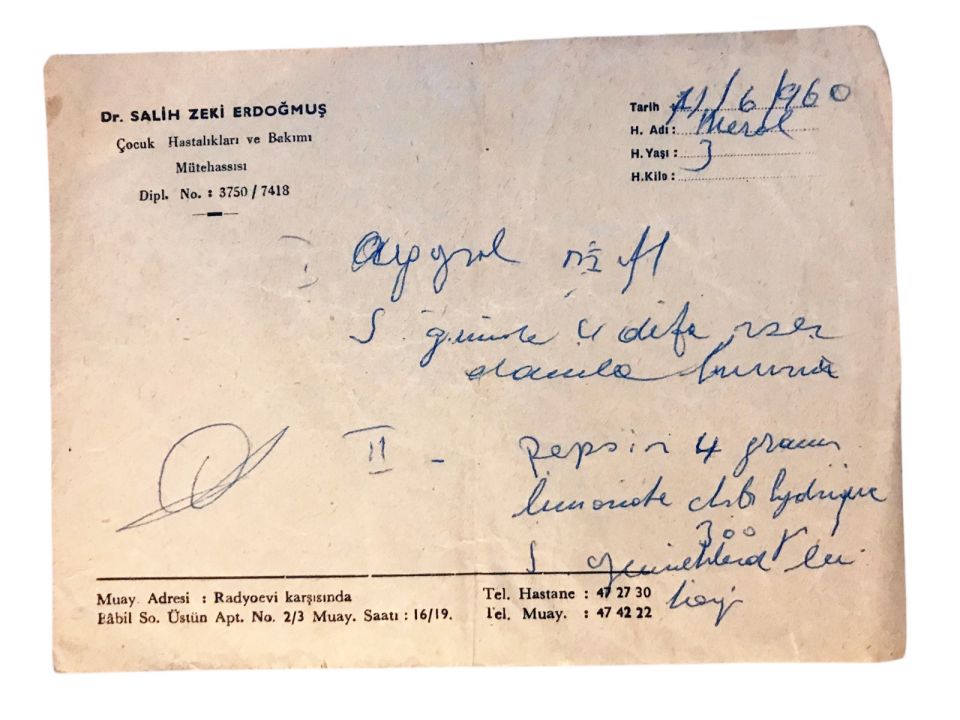 Dr. SALİH ZEKİ ERDOĞMUŞ
Çocuk Hastalıkları ve Bakımı
Mütehassısı
Dipl. No. : 3750 / 7418
Tarih : 11/6/960
H. Adı : Meral
H. Yaşı : 3
H. Kilo :
S günde 4 defa
damla buruna
II - pepsin 4 gram
limonate
300
S
Muay. Adresi : Radyoevi karşısında
Bâbil So. Üstün Apt. No. 2/3 Muay. Saatı : 16/19.
Tel. Hastane : 47 27 30
Tel. Muay. : 47 42 22